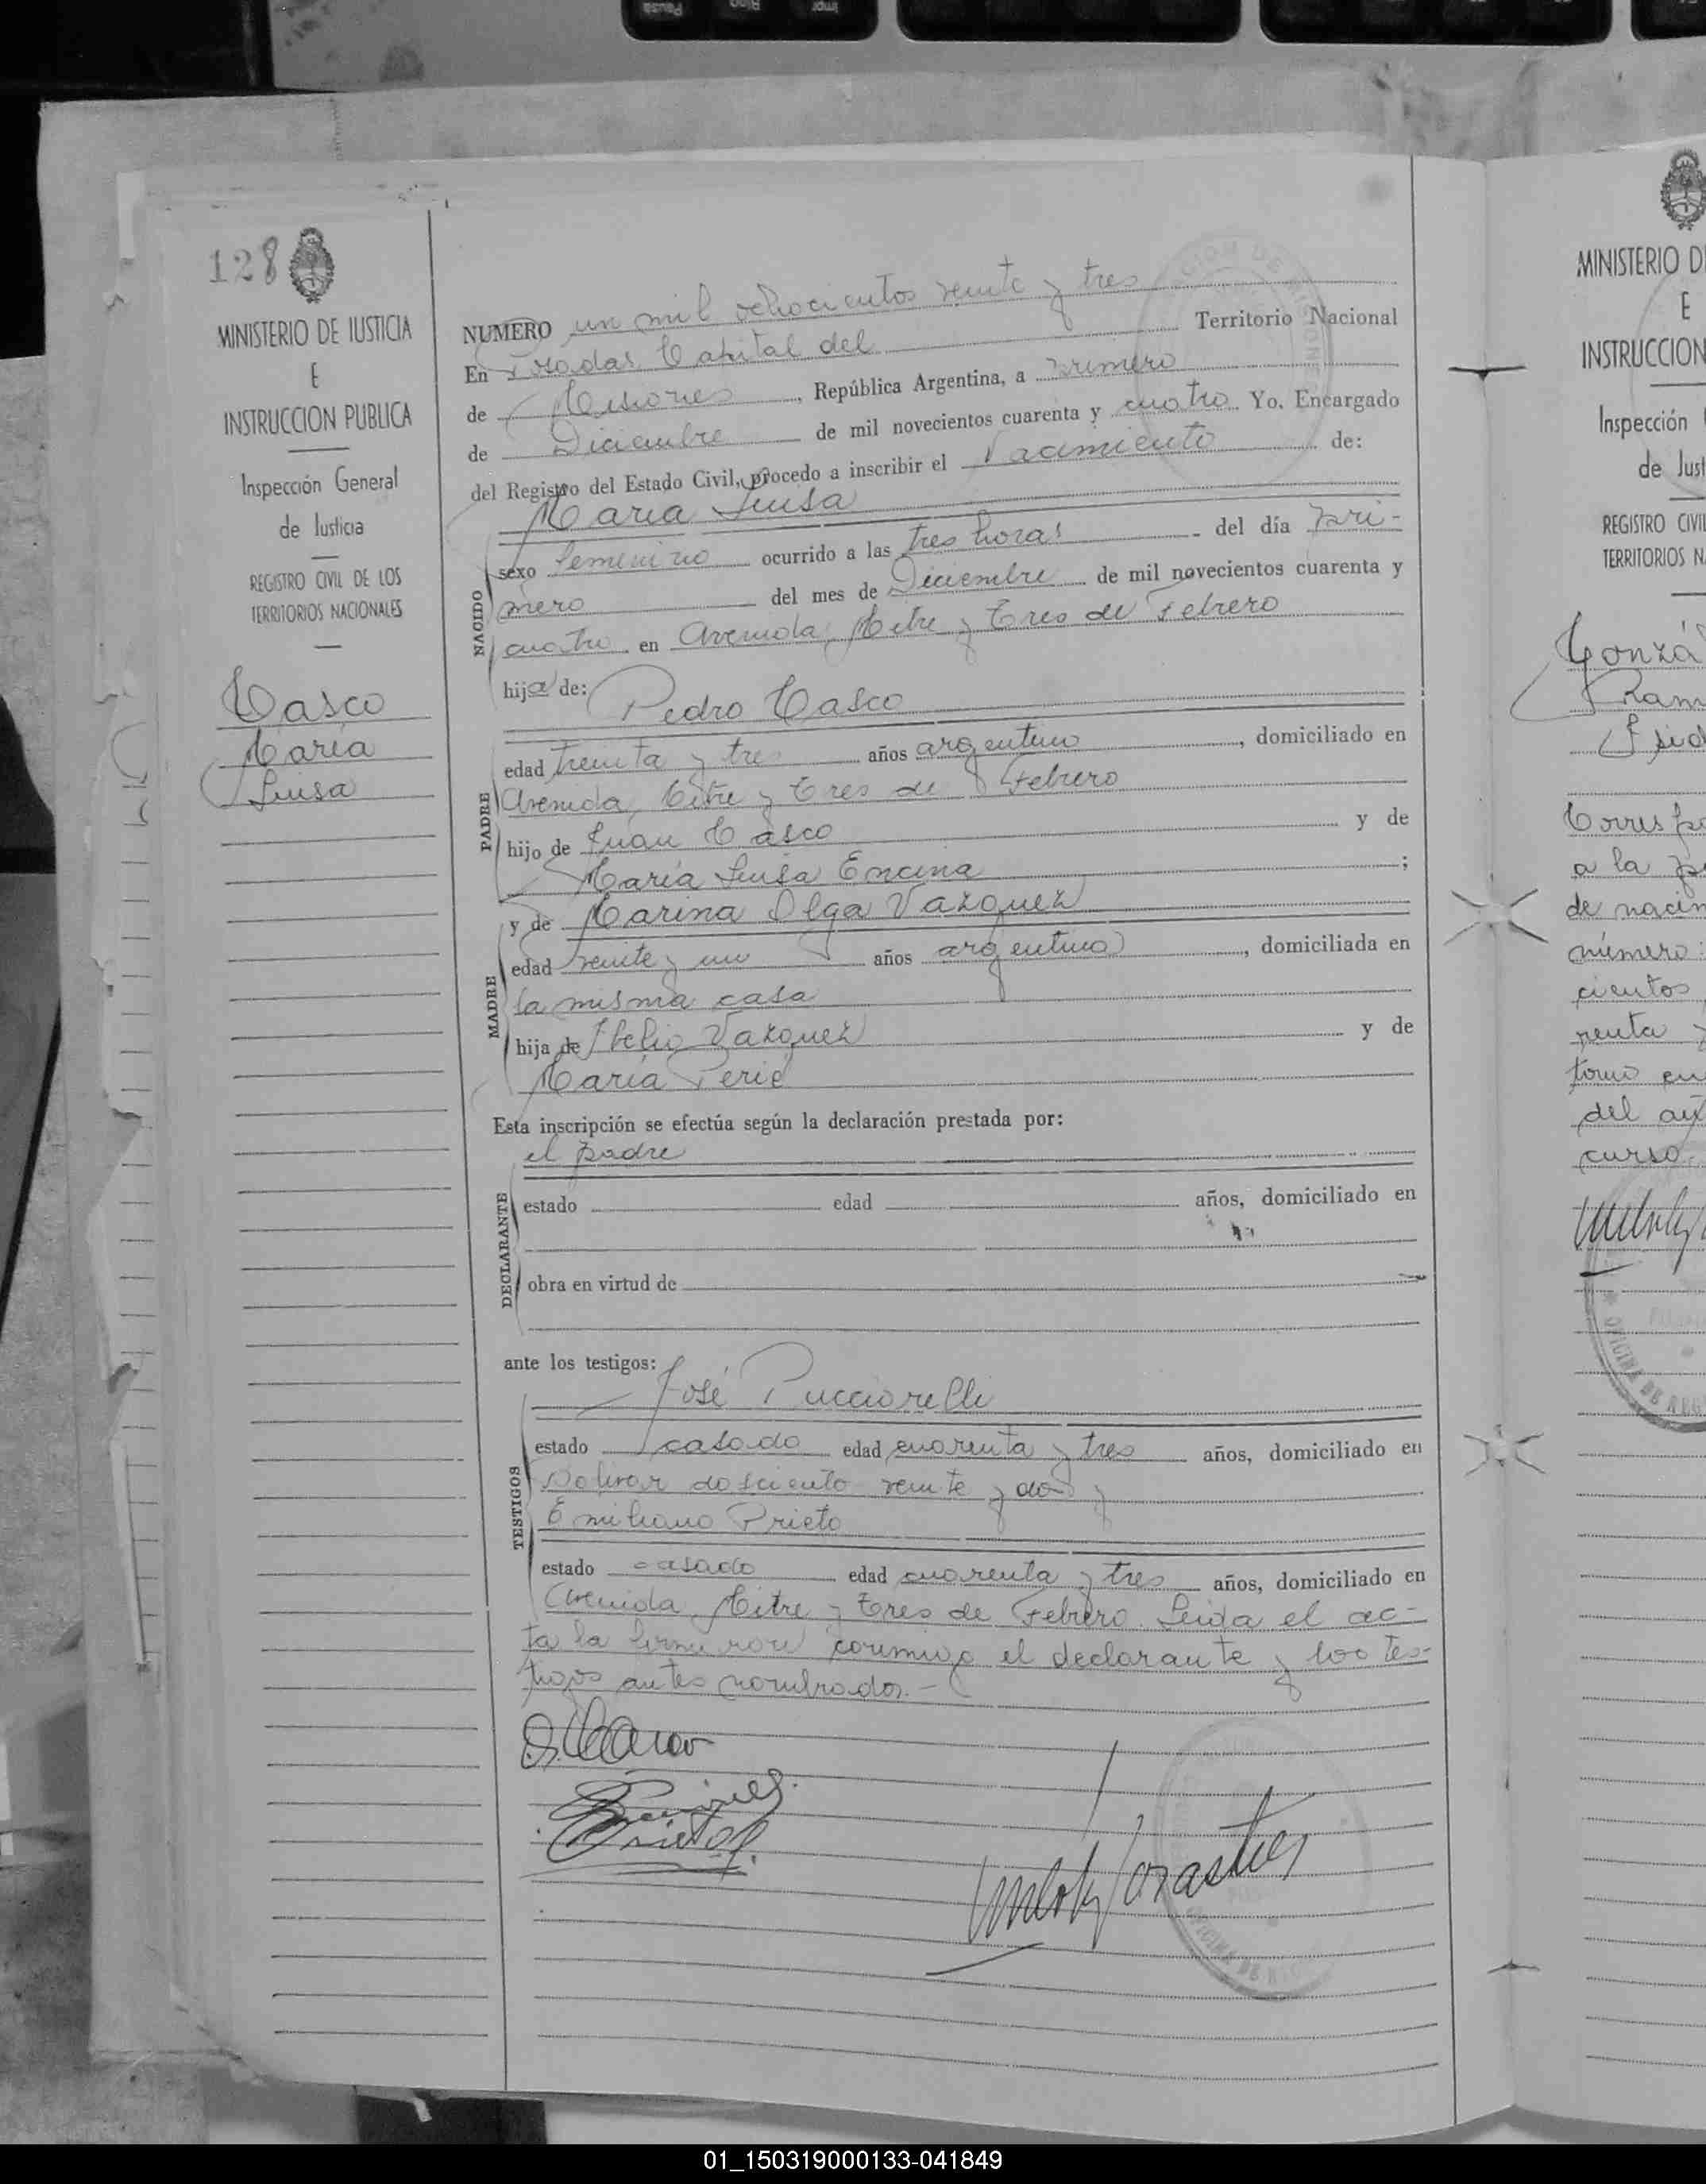 128
MINISTERIO DE JUSTICIA
E
INSTRUCCION PUBLICA
Inspección General
de Justicia
REGISTRO CIVIL DE LOS
TERRITORIOS NACIONALES
Casco
María
Luisa
NUMERO un mil ochocientos veinte y tres
En Posadas Capital del Territorio Nacional
de Misiones, República Argentina, a primero
de Diciembre de mil novecientos cuarenta y cuatro Yo, Encargado
del Registro del Estado Civil, procedo a inscribir el Nacimiento de:
María Luisa
NACIDO
sexo femenino ocurrido a las tres horas del día pri-
mero del mes de Diciembre de mil novecientos cuarenta y
cuatro en Avenida Mitre y Tres de Febrero
hija de:
Pedro Casco
PADRE
edad treinta y tres años argentino, domiciliado en
Avenida Mitre y Tres de Febrero
hijo de Juan Casco y de
María Luisa Encina;
y de Marina Olga Vazquez
MADRE
edad veinte y un años argentina, domiciliada en
la misma casa
hija de Vazquez y de
María
Esta inscripción se efectúa según la declaración prestada por:
el padre
DECLARANTE
estado edad años, domiciliado en
obra en virtud de
ante los testigos:
José Pucciarelli
TESTIGOS
estado casado edad cuarenta y tres años, domiciliado en
Bolivar dosciento veinte y dos y
Emiliano Prieto
estado casado edad cuarenta y tres años, domiciliado en
Avenida Mitre y Tres de Febrero. Leida el ac-
ta la firmaron conmigo el declarante y los tes-
tigos antes nombrados.-
MINISTERIO D
E
INSTRUCCION
Inspección
de Just
REGISTRO CIVIL
TERRITORIOS N
Gonzá
Ram
Isid
Corresp
a la
de nacim
número:
cientos
renta y
tomo
del
curso.
01_150319000133-041849